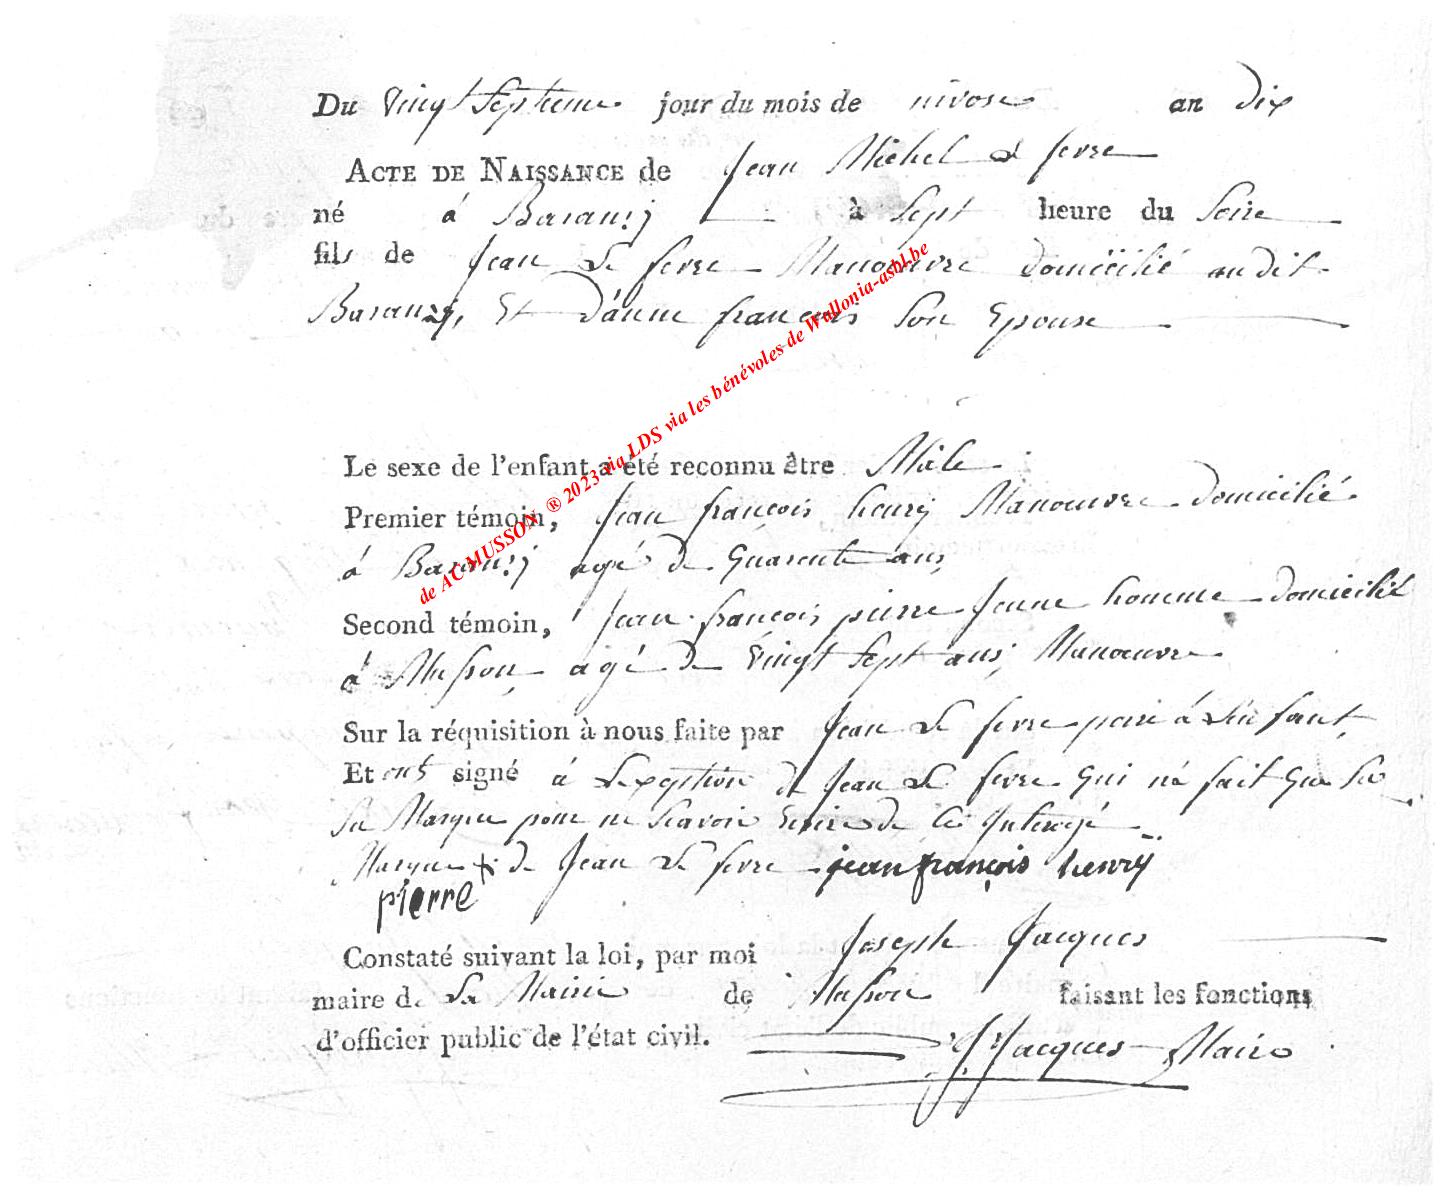 Du vingt Septieme jour du mois de nivose an dix
ACTE DE NAISSANCE de Jean Michel Le ferre
né á Baranzÿ à Sept heure du Soire
fils de Jean Le ferre Manoeuvre domicilié audit
Baranzÿ, Et d'anne françois Son Epouse
Le sexe de l'enfant a été reconnu être Mâle
Premier témoin, Jean françois henrÿ Manoeuvre domicilié
á Baranzÿ agé de Quarente ans
Second témoin, Jean françois pierre Jeune homme domicilié
á Musson agé de vingt Sept ans, Manoeuvre
Sur la réquisition à nous faite par Jean Le ferre pere á L'enfant
Et ont signé á Lexeption de Jean Le ferre Qui ná fait Que Sa
Sa Marque pour ne Scavoir Ecrire de Ce Interogé
Marque de Jean Le ferre jean françois henrÿ
pierre
Constaté suivant la loi, par moi Joseph Jacques
maire de La Mairie de Musson faisant les fonctions
d'officier public de l'état civil. J Jacques Maire
de AC MUSSON ® 2023 via LDS via les bénévoles de Wallonia-asbl.be